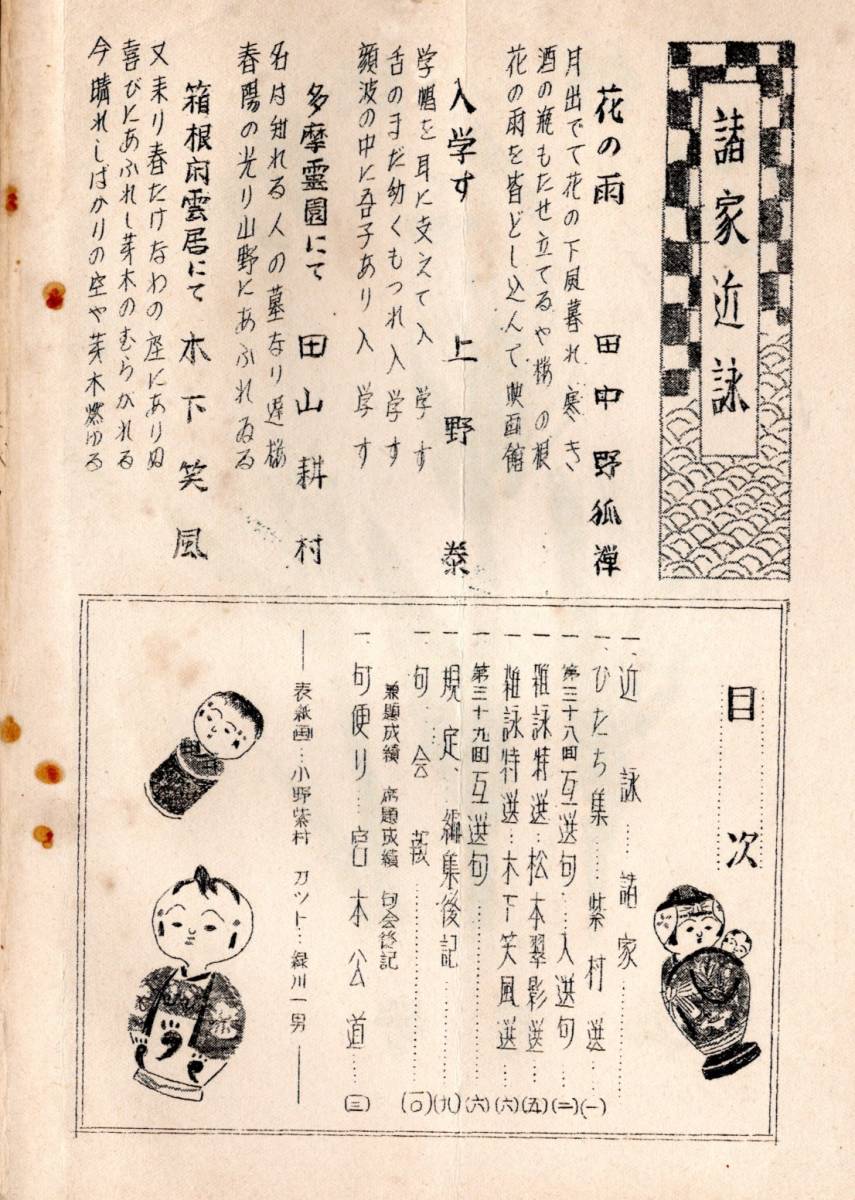 諸家近詠
花の雨　田中野狐禪
月出でて花の下風暮れ寒き
酒の瓶もたせ立てるや桜の根
花の雨を皆どし込んで映画館
入学す　上野泰
学帽を耳に支えて入学す
舌のまだ幼くもつれ入学す
顔波の中に吾子あり入学す
多摩霊園にて　田山耕村
名は知れる人の墓なり遅桜
春陽の光り山野にあふれゐる
箱根府雲居にて　木下笑風
又来り春たけなわの座にありぬ
喜びにあふれし芽木のむらがれる
今晴れしばかりの空や芽木燃ゆる
目次
一、近詠……諸家
一、ひたち集……紫村選……(一)
一、第三十八回互選句……入選句……(二)
一、雑詠特選…松本翠影選……(五)
一、雑詠特選…木下笑風選……(六)
一、第三十九回互選句……(六)
一、規定、編集後記……(九)
一、句会報……(一〇)
兼題成績　席題成績　句会後記
一、句便り……宮本公道……(三)
表紙画…小野紫村　カット…緑川一男